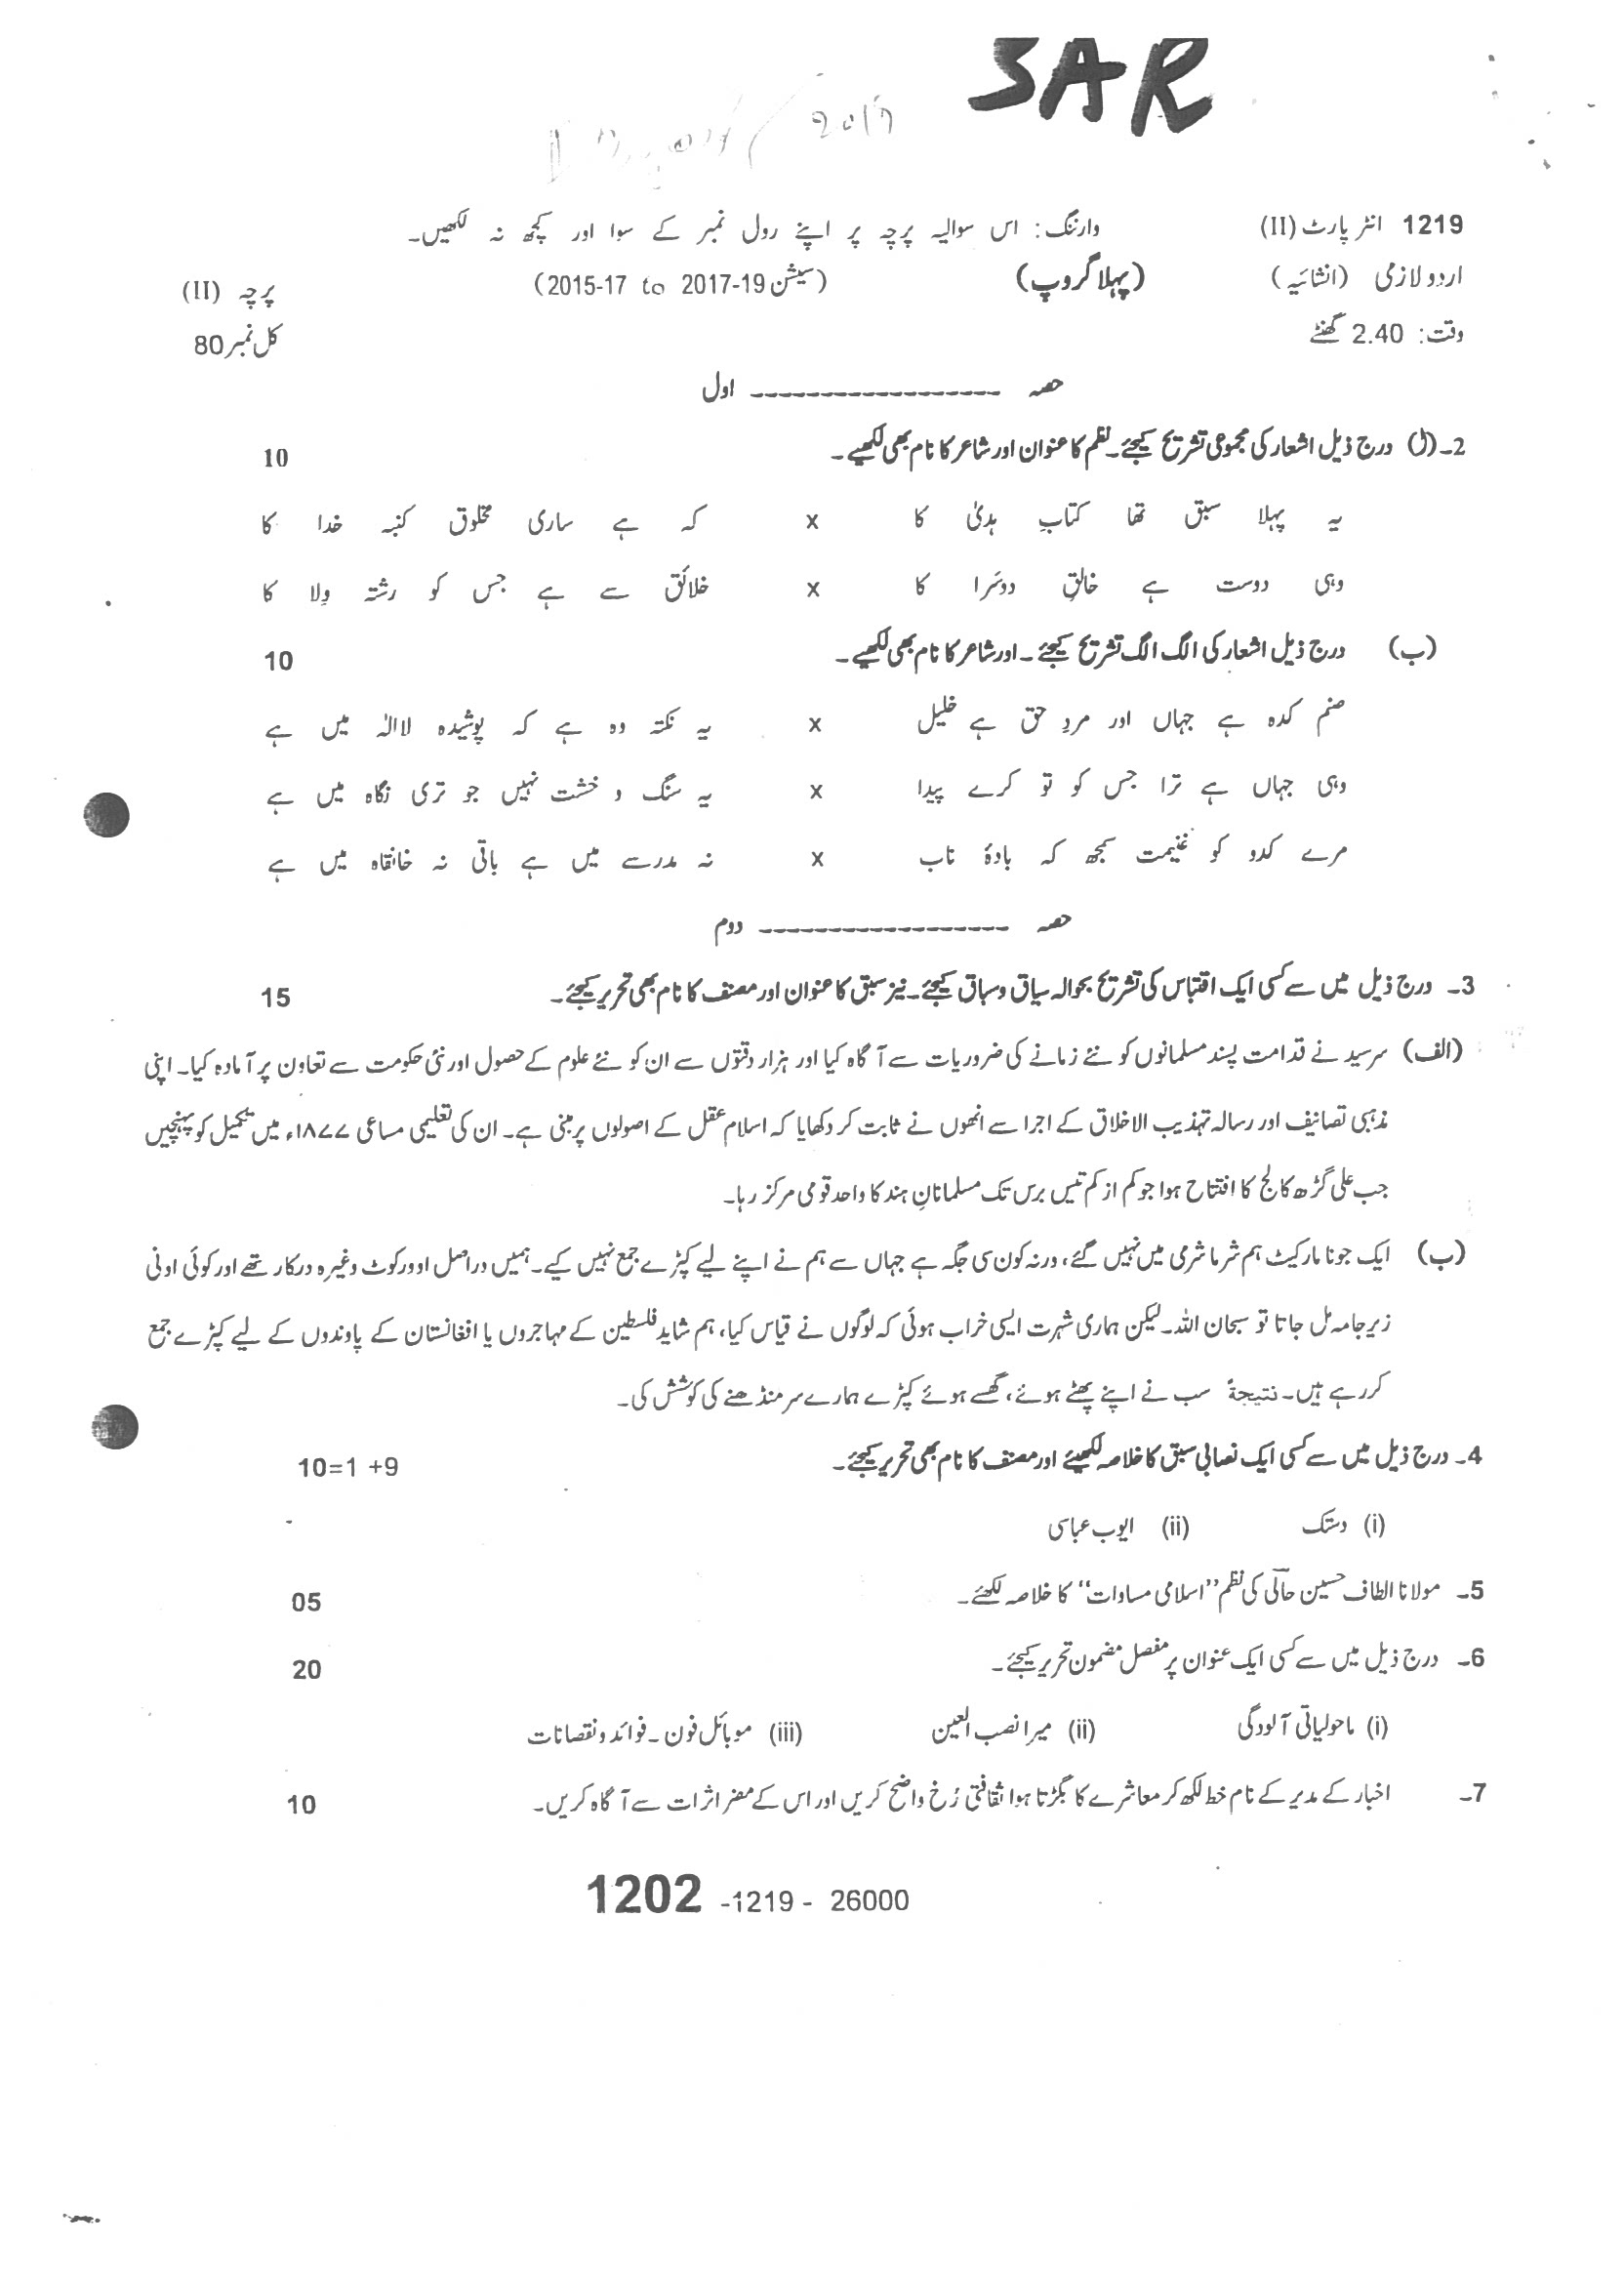 SAR
2017
1219 انٹر پارٹ (II) وارننگ: اس سوالیہ پرچہ پر اپنے رول نمبر کے سوا اور کچھ نہ لکھیں۔
اردو لازمی (انشائیہ) (پہلا گروپ) (سیشن 2015-17 to 2017-19) پرچہ (II)
وقت: 2.40 گھنٹے کل نمبر 80
حصہ ------------------ اول
2۔ (ا) درج ذیل اشعار کی مجموعی تشریح کیجئے۔ نظم کا عنوان اور شاعر کا نام بھی لکھیے۔ 10
یہ پہلا سبق تھا کتابِ ہدیٰ کا x کہ ہے ساری مخلوق کنبہ خدا کا
وہی دوست ہے خالقِ دوسَرا کا x خلائق سے ہے جس کو رشتہ وِلا کا
(ب) درج ذیل اشعار کی الگ الگ تشریح کیجئے۔ اور شاعر کا نام بھی لکھیے۔ 10
صنم کدہ ہے جہاں اور مردِ حق ہے خلیل x یہ نکتہ وہ ہے کہ پوشیدہ لاالہٰ میں ہے
وہی جہاں ہے ترا جس کو تو کرے پیدا x یہ سنگ و خشت نہیں جو تری نگاہ میں ہے
مرے کدو کو غنیمت سمجھ کہ بادۂ ناب x نہ مدرسے میں ہے باقی نہ خانقاہ میں ہے
حصہ ------------------ دوم
3۔ درج ذیل میں سے کسی ایک اقتباس کی تشریح بحوالہ سیاق و سباق کیجئے۔ نیز سبق کا عنوان اور مصنف کا نام بھی تحریر کیجئے۔ 15
(الف) سرسید نے قدامت پسند مسلمانوں کو نئے زمانے کی ضروریات سے آگاہ کیا اور ہزار دقتوں سے ان کو نئے علوم کے حصول اور نئی حکومت سے تعاون پر آمادہ کیا۔ اپنی
مذہبی تصانیف اور رسالہ تہذیب الاخلاق کے اجرا سے انھوں نے ثابت کر دکھایا کہ اسلام عقل کے اصولوں پر مبنی ہے۔ ان کی تعلیمی مساعی ۱۸۷۷ء میں تکمیل کو پہنچیں
جب علی گڑھ کالج کا افتتاح ہوا جو کم از کم تیس برس تک مسلمانانِ ہند کا واحد قومی مرکز رہا۔
(ب) ایک جونا مارکیٹ ہم شرما شرمی میں نہیں گئے، ورنہ کون سی جگہ ہے جہاں سے ہم نے اپنے لیے کپڑے جمع نہیں کیے۔ ہمیں دراصل اوورکوٹ وغیرہ درکار تھے اور کوئی اونی
زیر جامہ مل جاتا تو سبحان اللہ۔ لیکن ہماری شہرت ایسی خراب ہوئی کہ لوگوں نے قیاس کیا، ہم شاید فلسطین کے مہاجروں یا افغانستان کے پاوندوں کے لیے کپڑے جمع
کر رہے ہیں۔ نتیجۃً سب نے اپنے پھٹے ہوئے، گھسے ہوئے کپڑے ہمارے سر منڈھنے کی کوشش کی۔
4۔ درج ذیل میں سے کسی ایک نصابی سبق کا خلاصہ لکھیئے اور مصنف کا نام بھی تحریر کیجئے۔ 10=1 +9
(i) دستک (ii) ایوب عباسی
5۔ مولانا الطاف حسین حالؔی کی نظم ’’اسلامی مساوات‘‘ کا خلاصہ لکھئے۔ 05
6۔ درج ذیل میں سے کسی ایک عنوان پر مفصل مضمون تحریر کیجئے۔ 20
(i) ماحولیاتی آلودگی (ii) میرا نصب العین (iii) موبائل فون۔ فوائد و نقصانات
7۔ اخبار کے مدیر کے نام خط لکھ کر معاشرے کا بگڑتا ہوا ثقافتی رُخ واضح کریں اور اس کے مضر اثرات سے آگاہ کریں۔ 10
1202 -1219 - 26000